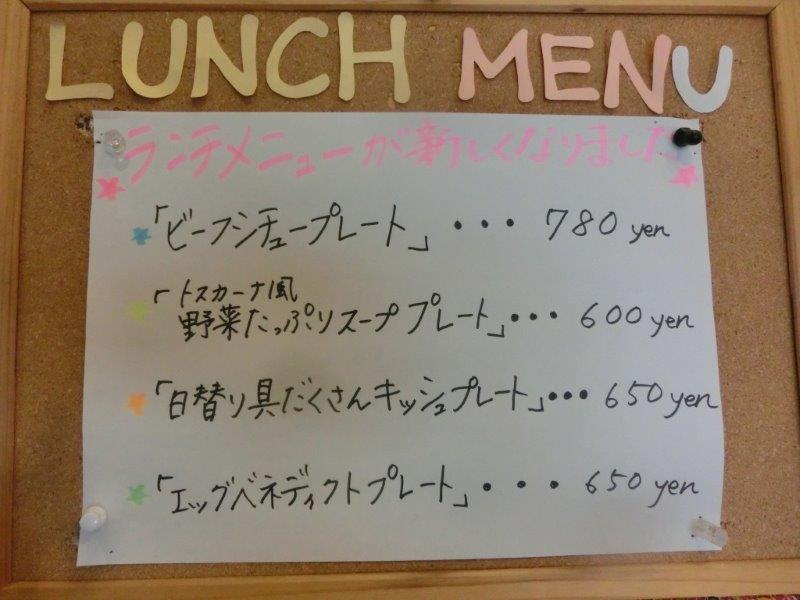 LUNCH MENU
ランチメニューが新しくなりました
「ビーフシチュープレート」・・・780 yen
「トスカーナ風
野菜たっぷりスーププレート」・・・600 yen
「日替り具だくさんキッシュプレート」・・・650 yen
「エッグベネディクトプレート」・・・650 yen